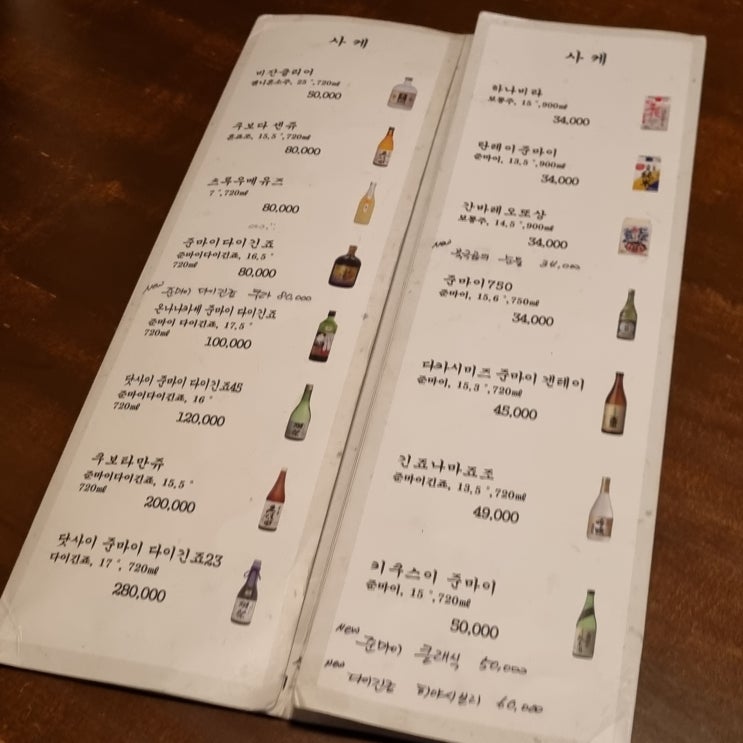 사케
비잔클리어
렌니혼소주, 25 °,720㎖
50,000
쿠보다 센쥬
혼죠조, 15,5 °,720㎖
80,000
츠루우메유즈
7 °,720㎖
80,000
준마이다이긴죠
준마이다이긴죠, 16,5 °
720㎖
80,000
New 준마이 다이긴죠 80,000
온나나카세 준마이 다이긴죠
준마이 다이긴죠, 17,5 °
720㎖
100,000
닷사이 준마이 다이긴죠45
준마이다이긴죠, 16 °
720㎖
120,000
쿠보타만쥬
준마이다이긴죠, 15,5 °
720㎖
200,000
닷사이 준마이 다이긴죠23
다이긴죠, 17 °, 720㎖
280,000
사케
하나비라
보통주, 15 °,900㎖
34,000
탄레이준마이
준마이, 13,5 °,900㎖
34,000
간바레오또상
보통주, 14,5 °,900㎖
34,000
New 북극곰의 눈물 34,000
준마이750
준마이, 15,6 °,750㎖
34,000
다카시미즈 준마이 캔테이
준마이, 15,3 °,720㎖
45,000
긴죠나마죠조
준마이긴죠, 13,5 °,720㎖
49,000
키쿠스이 준마이
준마이, 15 °,720㎖
50,000
New 준마이 클래식 50,000
New 다이긴죠 히야시보리 60,000